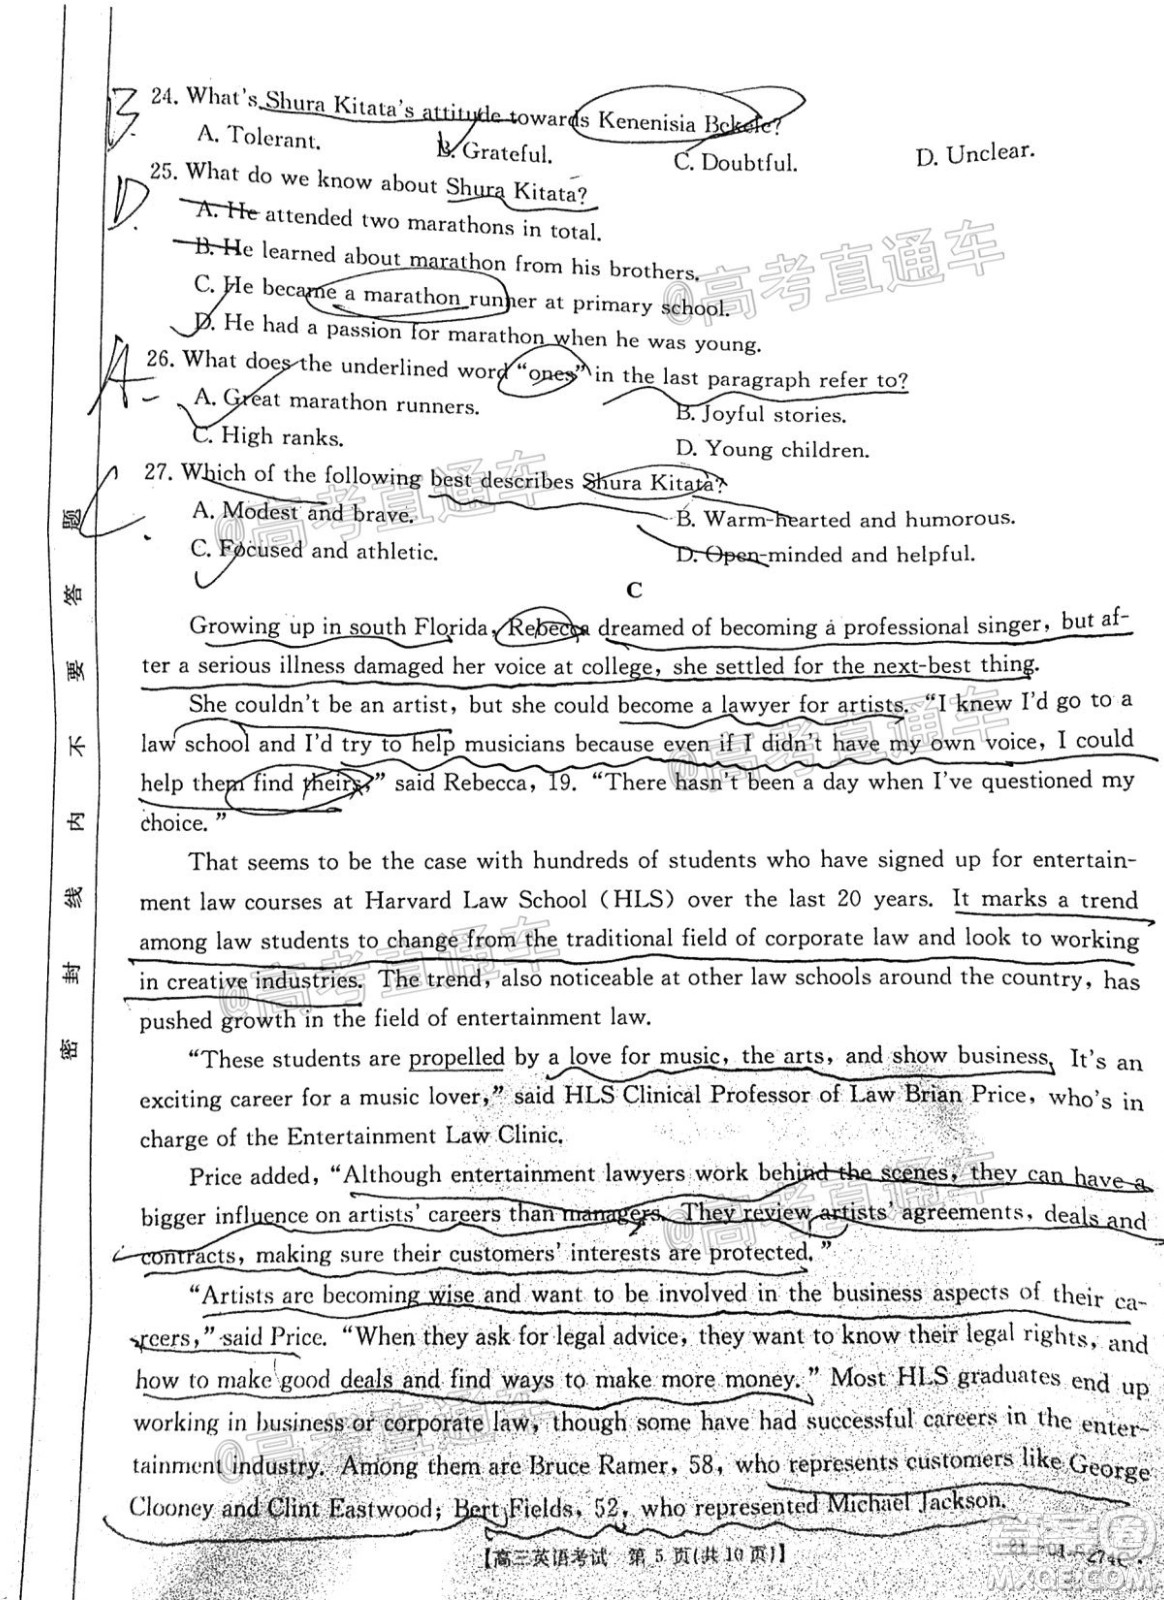 24. What's Shura Kitata's attitude towards Kenenisia Bekele?
B.
A. Tolerant. B. Grateful. C. Doubtful. D. Unclear.
25. What do we know about Shura Kitata?
D.
A. He attended two marathons in total.
B. He learned about marathon from his brothers.
C. He became a marathon runner at primary school.
D. He had a passion for marathon when he was young.
26. What does the underlined word “ones” in the last paragraph refer to?
A
A. Great marathon runners. B. Joyful stories.
C. High ranks. D. Young children.
27. Which of the following best describes Shura Kitata?
C
A. Modest and brave. B. Warm-hearted and humorous.
C. Focused and athletic. D. Open-minded and helpful.
C
Growing up in south Florida, Rebecca dreamed of becoming a professional singer, but af-
ter a serious illness damaged her voice at college, she settled for the next-best thing.
She couldn't be an artist, but she could become a lawyer for artists. “I knew I'd go to a
law school and I'd try to help musicians because even if I didn't have my own voice, I could
help them find theirs,” said Rebecca, 19. “There hasn't been a day when I've questioned my
choice.”
That seems to be the case with hundreds of students who have signed up for entertain-
ment law courses at Harvard Law School (HLS) over the last 20 years. It marks a trend
among law students to change from the traditional field of corporate law and look to working
in creative industries. The trend, also noticeable at other law schools around the country, has
pushed growth in the field of entertainment law.
“These students are propelled by a love for music, the arts, and show business. It's an
exciting career for a music lover,” said HLS Clinical Professor of Law Brian Price, who's in
charge of the Entertainment Law Clinic.
Price added, “Although entertainment lawyers work behind the scenes, they can have a
bigger influence on artists' careers than managers. They review artists' agreements, deals and
contracts, making sure their customers' interests are protected.”
“Artists are becoming wise and want to be involved in the business aspects of their ca-
reers,” said Price. “When they ask for legal advice, they want to know their legal rights, and
how to make good deals and find ways to make more money.” Most HLS graduates end up
working in business or corporate law, though some have had successful careers in the enter-
tainment industry. Among them are Bruce Ramer, 58, who represents customers like George
Clooney and Clint Eastwood; Bert Fields, 52, who represented Michael Jackson.
【高三英语考试 第 5 页(共 10 页)】
密 封 线 内 不 要 答 题
@高考直通车
@高考直通车
@高考直通车
@高考直通车
@高考直通车
@高考直通车
@高考直通车
MXQE.COM